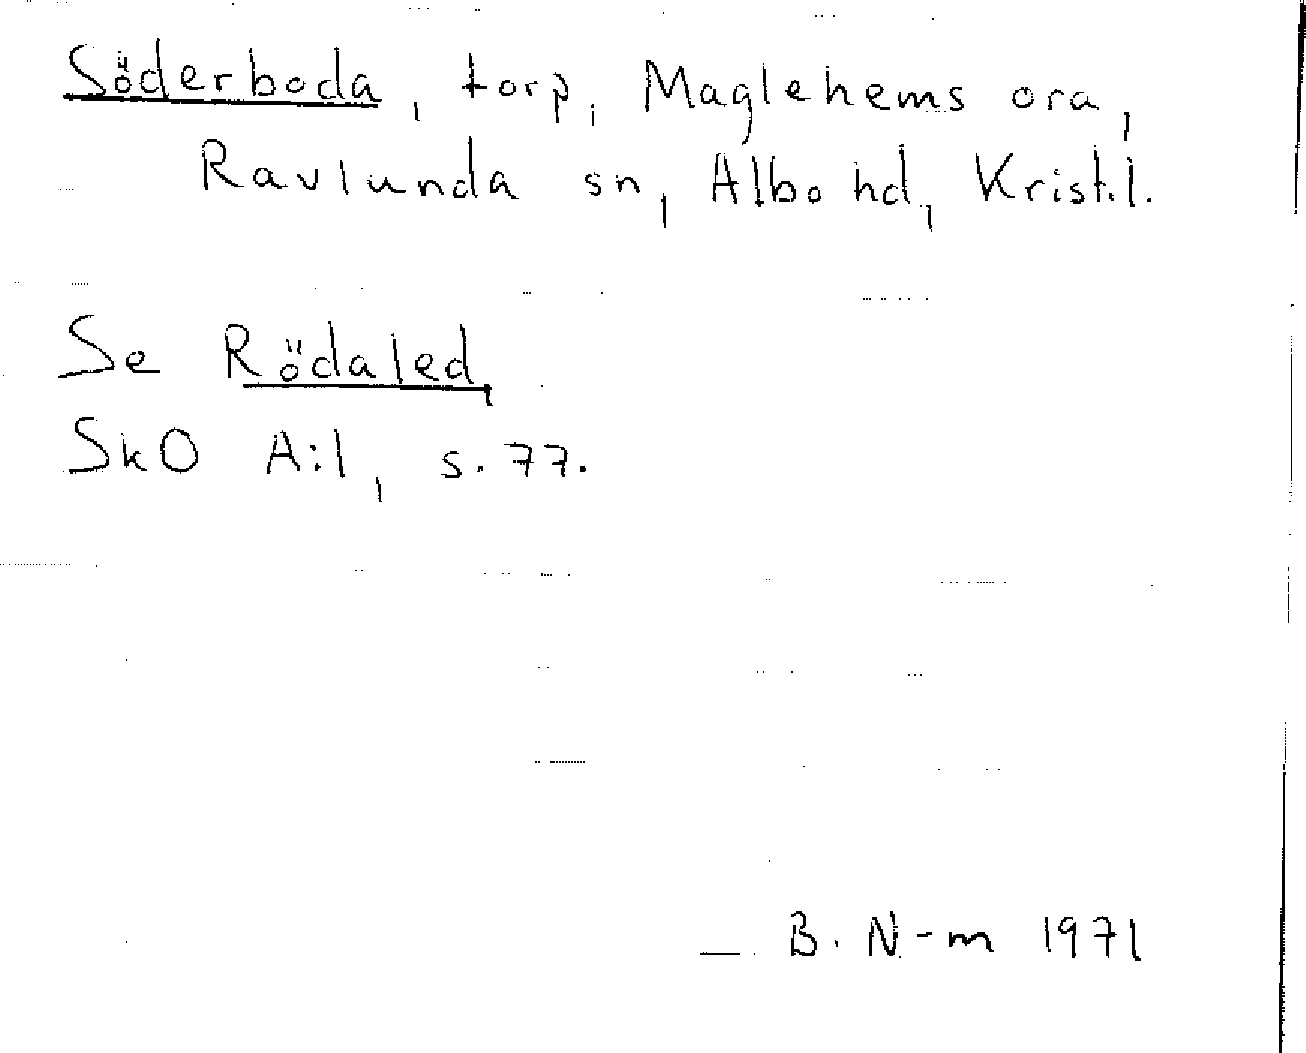 Söderboda, torp, Maglehems ora,
Ravlunda sn, Albo hd, Krist.l.
Se Rödaled,
SkO A:1, s. 77.
B. N-m 1971